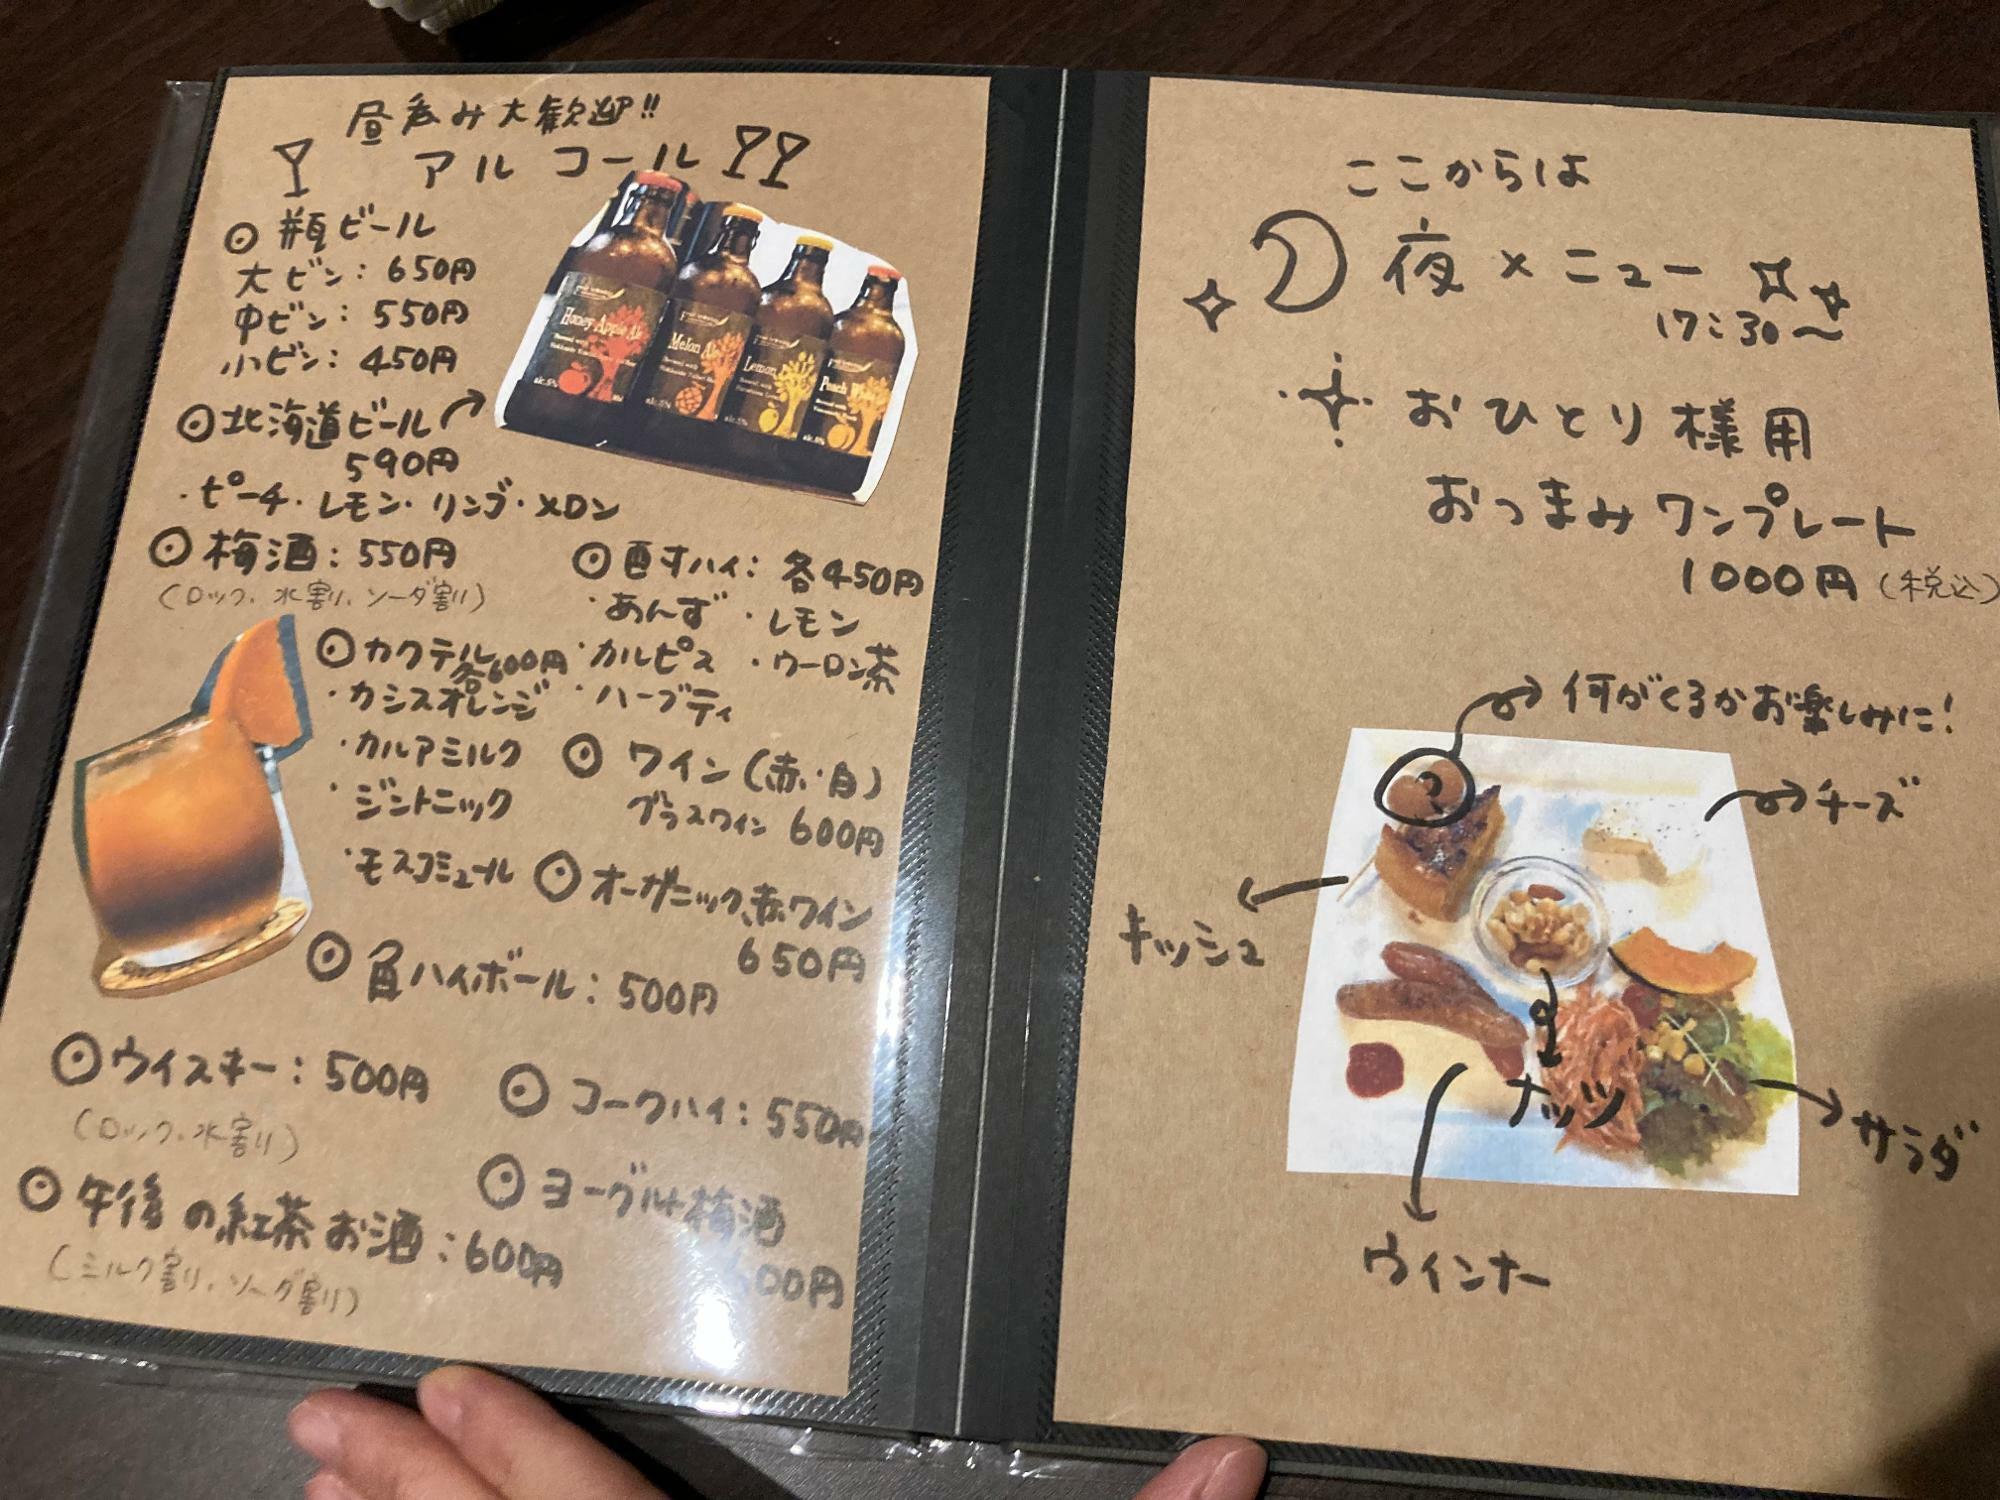 昼呑み大歓迎!!
アルコール
◎ 瓶ビール
大ビン: 650円
中ビン: 550円
小ビン: 450円
◎北海道ビール
590円
・ピーチ・レモン・リンゴ・メロン
◎ 梅酒: 550円
(ロック、水割り、ソーダ割り)
◎ カクテル
各600円
・カシスオレンジ
・カルアミルク
・ジントニック
・モスコミュール
◎ 酎ハイ: 各450円
・あんず ・レモン
・カルピス ・ウーロン茶
・ハーブティ
◎ ワイン(赤・白)
グラスワイン 600円
◎ オーガニック赤ワイン
650円
◎ 角ハイボール: 500円
◎ウイスキー: 500円
(ロック、水割り)
◎ コークハイ: 550円
◎ 午後の紅茶お酒: 600円
(ミルク割り、ソーダ割り)
◎ ヨーグルト梅酒
00円
Honey Apple Ale
Melon Ale
Lemon
Peach
ここからは
夜メニュー
17:30〜
おひとり様用
おつまみワンプレート
1000円(税込)
何がくるかお楽しみに!
?
チーズ
キッシュ
ナッツ
サラダ
ウインナー